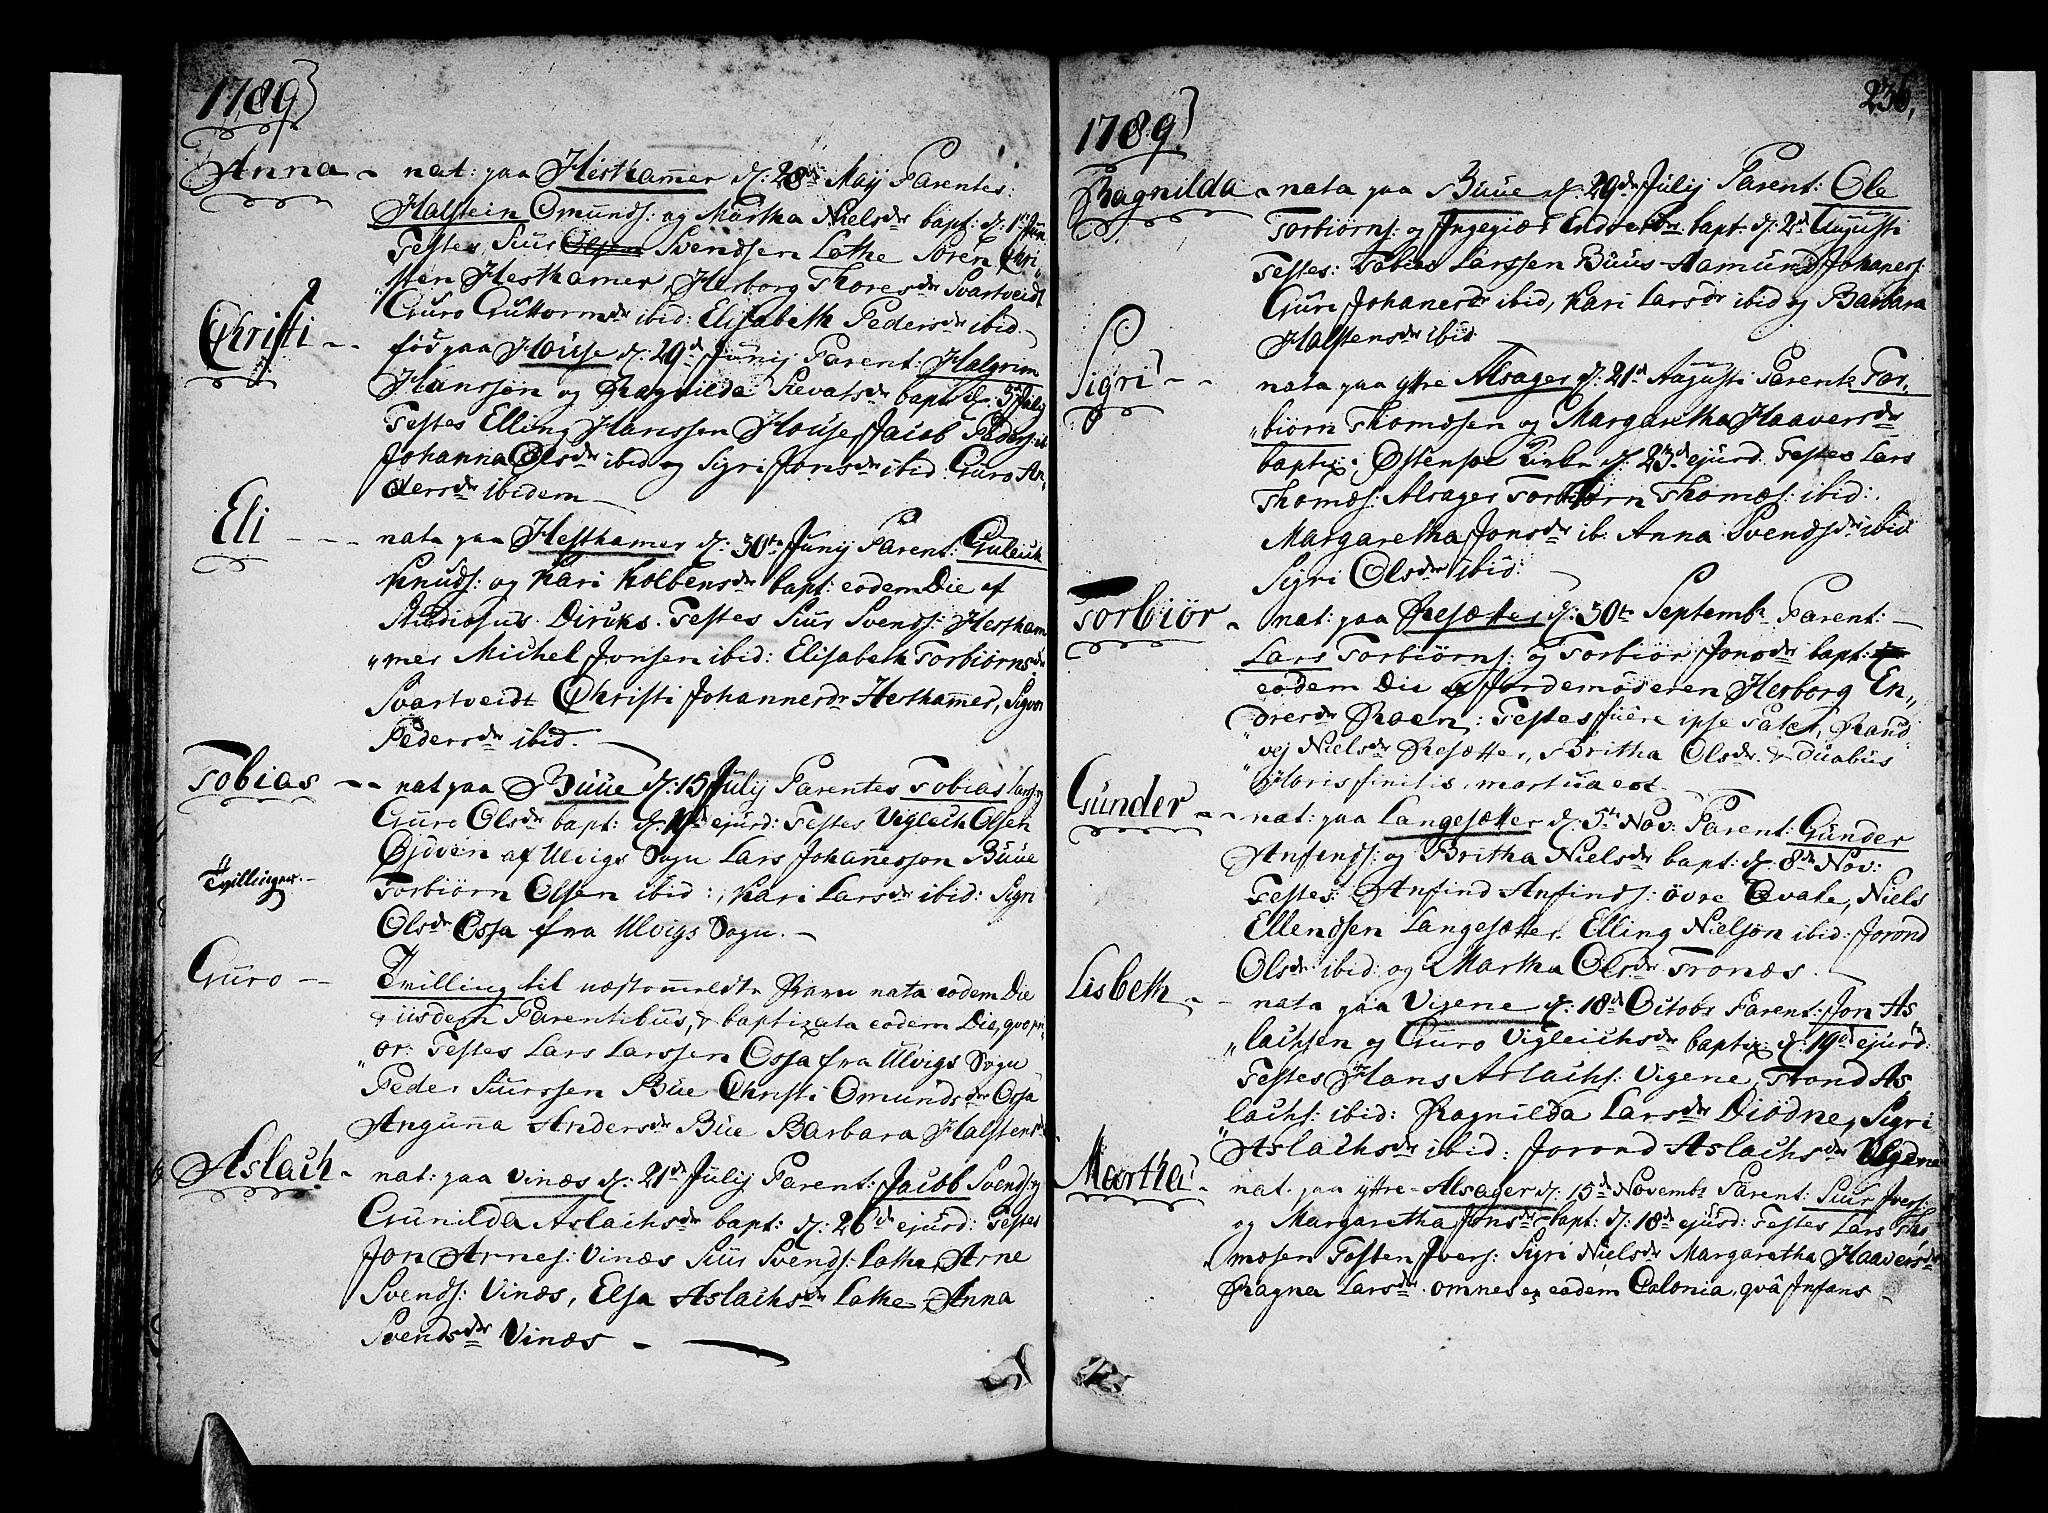 1789
Anna - nat: paa Hesthamer d: 28de Maij Parentes:
Halstein Omunds: og Martha Nielsdr bapt: d: 1st Jun
Testes Siur Olsen Svendsen Lothe Sören Chri
"sten Hesthamer, Herborg Thoresdr Svartveidt
Guro Guttormsdr ibid: Elisabeth Pedersdr ibid.
Christi - - föd paa House d: 29d Junij Parent: Halgrim
Hanssøn og Ragnilda Sievatsdr bapt: d: 5t Julij
Testes Elling Hanssen House, Jacob Peders: ib
Johanna Olsdr ibid og Sigri Jonsdr ibid. Guro An-
dersdr ibidem -
Eli - - - nata paa Hesthamer d: 30te Junij Parent: Guleich
Knuds: og Kari Kolbensdr bapt: eodem Die af
Studiosus Diruks. Testes Siur Svends: Hestham
"mer Michel Jonsen ibid: Elisabeth Torbiörnsdr
Svartveidt Christi Johannesdr Hesthammer, Sigvor
Pedersdr ibid. -
Tobias - - nat paa Buue d: 15 Julij Parentes Tobias Lars: og
Guro Olsdr bapt: d: ejusd: Testes Vigleich Olsen
Öjdven af Ulvigs Sogn Lars Johannessøn Buue
Tvillinger. - Torbiörn Olsen ibid:, Kari Larsdr ibid: Sigri
Olsdr Ossa fra Ulvigs Sogn. -
Guro - Tvilling til næstommeldte Barn nata eodem Die
& iisdem Parentibus, & baptizata eodem Die, qvo pri-
"or: Testes Lars Larssen Ossa fra Ulvigs Sogn
Peder Siurssen Bue Christi Omundsdr Ossa
Angunna Andersdr Bue Barbara Halstensdr
Aslach - nat: paa Vinæs d: 21de Julij Parent: Jacob Svends: og
Gunilda Aslachsdr bapt: d: 26de ejusd: Testes
Jon Arnes: Vinæs Siur Svends: Lothe, Arne
Svends: Vinæs, Elsa Aslachsdr Lothe, Anna
Svendsdr Vinæs -
236,
1789
Ragnilda - nata paa Buue d: 29de Julij Parent: Ole
Torbiörns: og Ingegiær Endresdr bapt: d: 2d Augusti
Testes: Tobias Larssen Buus Aamund Johanes:
Guri Johanesdr ibid, Kari Larsdr ibid og Barbara
Halstensdr ibid
Sigri - - nata paa ytre Alsager d: 21d Augusti Parente Tor,
"biörn Thomæsen og Margaretha Haaversdr
baptiz: i Østensøe Kirke d: 23d ejusd. Testes Lars
Thomæs: Alsager Torbiörn Thomæs: ibid:
Margaretha Jonsdr ib: Anna Svendsdr ibid
Sigri Olsdr ibid:
Torbiör - nat: paa Resætter d: 30te Septemb. Parent: -
Lars Torbiörns: og Torbiör Jonsdr bapt:
eodem Die af Jordemoderen Herborg En,,
"dresdr Roen: Testes fuere ipse Pater, Rand
"vej Nielsdr Resætter, Britha Olsdr & duabus
"Horis finitis, mortua est.
Günder - - nat: paa Langesætter d: 5te Nov: Parent: Günder
Anfinds: og Britha Nielsdr bapt: d: 8de Nov:
Testes: Anfind Anfinds: övre Qvale, Niels
Ellendsen Langesætter. Elling Nielsøn ibid: Jorond
Olsdr: ibid: og Martha Olsdr Tronæs.
Lisbeth - - nata paa Vigene d: 18d Octobr Parent: Jon As
"lachsen og Guro Vigleichsdr baptiz: d: 19de ejusd:
Testes Hans Aslachs: Vigene, Trond As
"lachs: ibid: Ragnilda Larsdr Diødne, Sigri
Aslachsdr ibid: Jorond Aslachsdr
Martha - nat. paa ytre Alsager d: 15de Novembr Parent: Siur Ivers:
og Margaretha Jonsdr bapt: d: 18de ejusd: Testes Lars Tho
"mæsen Tosten Ivers: Sigri Nielsdr Margaretha Haaversdr
Ragna Larsdr. omnes ex eadem Colonia, qvâ Infans -